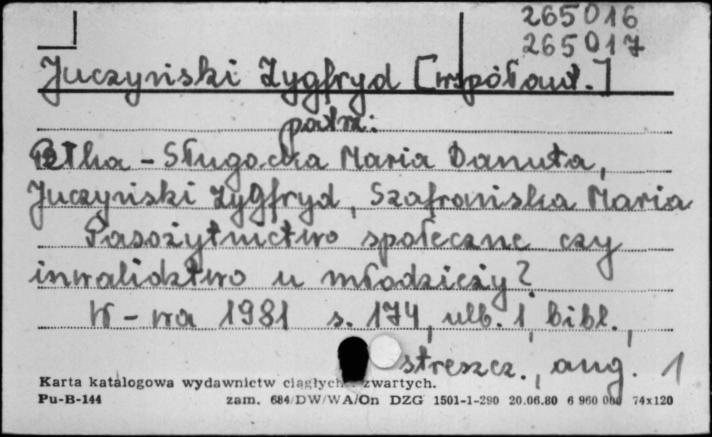 265016
265017
Juczyński Zygfryd [współaut.]
patrz:
Pełka-Sługocka Maria Danuta,
Juczyński Zygfryd, Szafrańska Maria
Pasożytnictwo społeczne czy
inwalidztwo u młodzieży?
W-wa 1981 s. 174, ulb. 1, bibl.,
streszcz., ang. 1
Karta katalogowa wydawnictw ciągłych zwartych.
Pu-B-144 zam. 684/DW/WA/On DZG 1501-1-290 20.06.80 6 960 000 74x120